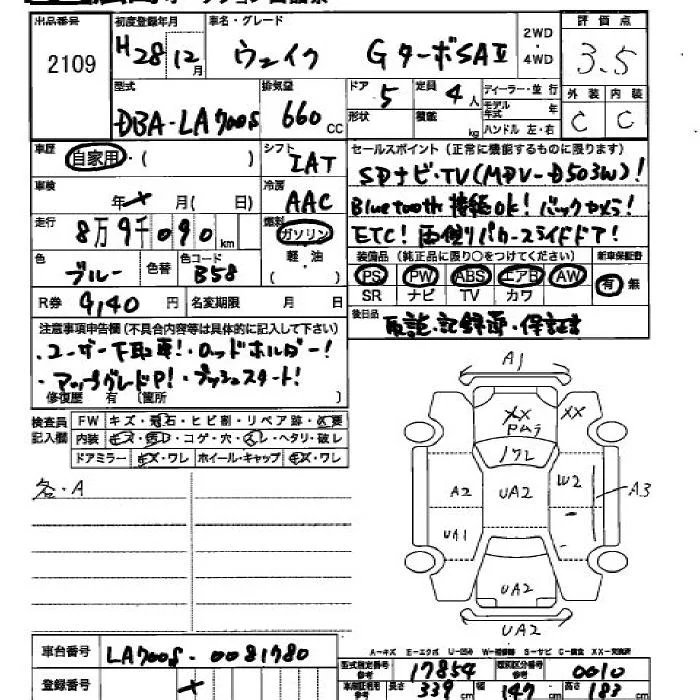 出品番号 初度登録年月 車名・グレード 2WD・4WD 評価点
2109 H28 12月 ウェイク GターボSAⅡ 3.5
型式 排気量 ドア 5 定員 4人 ディーラー・並行 外装 内装
DBA-LA700S 660cc 形状 積載 kg モデル年式 年 ハンドル 左・右 C C
車歴 自家用・( ) シフト IAT セールスポイント(正常に機能するものに限ります)
SDナビ・TV(MDV-D503W)!
車検 年 月( 日) 冷房 AAC Bluetooth接続OK!バックカメラ!
走行 8万9千090km 燃料 ガソリン ETC!両側パワースライドドア!
軽・油 装備品(純正品に限り○をつけてください) 新車保証書
色 ブルー 色替 色コード B58 PS PW ABS エアB AW 有 無
( ) SR ナビ TV カワ
R券 9,140円 名変期限 月 日 後日品 取説・記録簿・保証書
注意事項申告欄(不具合内容等は具体的に記入して下さい)
・ユーザー下取車!・ロッドホルダー!
・アップグレードP!・プッシュスタート!
修復歴 有 〔箇所 〕
検査員記入欄 FW キズ・飛石・ヒビ割・リペア跡・X要
内装 キズ・汚レ・コゲ・穴・スレ・ヘタリ・破レ
ドアミラー キズ・ワレ ホイール・キャップ キズ・ワレ
各・A
A1
XX XX
PAラ
ワレ
A2 UA2 W2 A3
UA1
UA2
UA2
A-キズ E-エクボ U-凹み W-補修跡 S-サビ C-腐食 XX-交換済
車台番号 LA700S-0081780
型式指定番号 参考 17854 類別区分番号 参考 0010
登録番号 長さ 339cm 幅 147cm 高さ 183cm